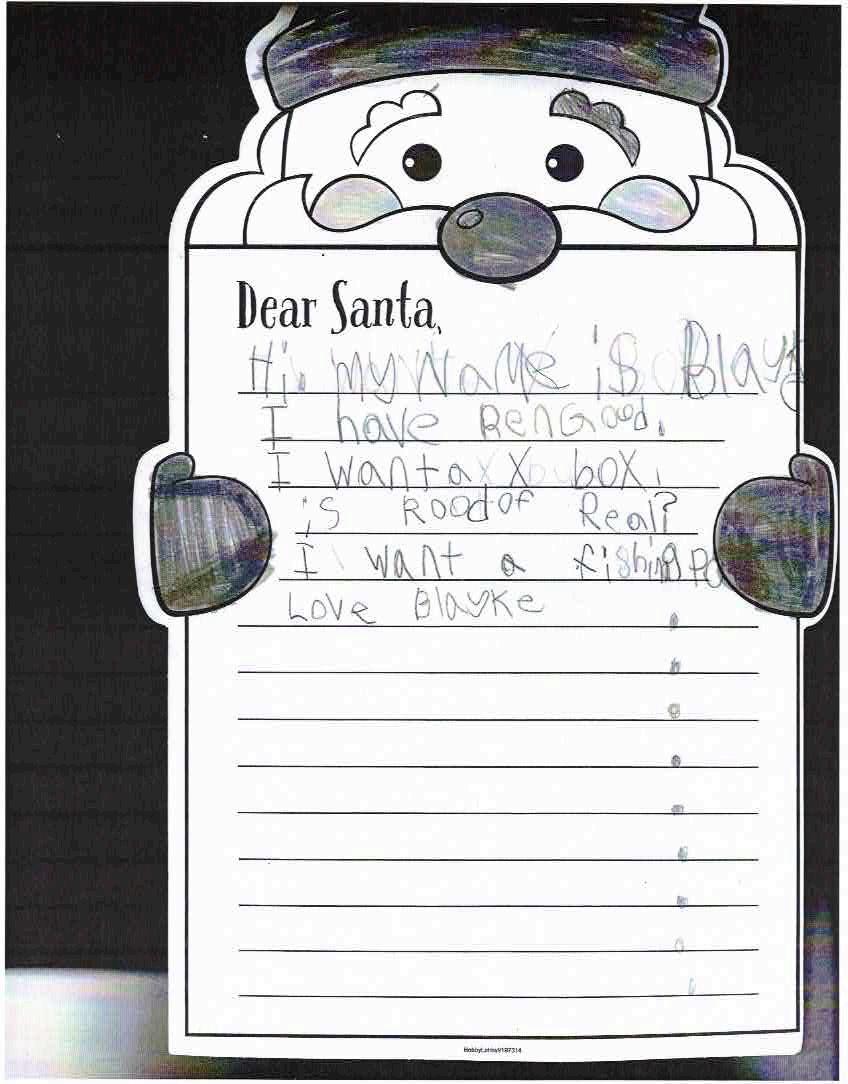 Dear Santa,
Hi. my Name is Blayke
I have BenGood.
I want a X box.
is Roodof Real?
I want a fishing Po
Love Blayke